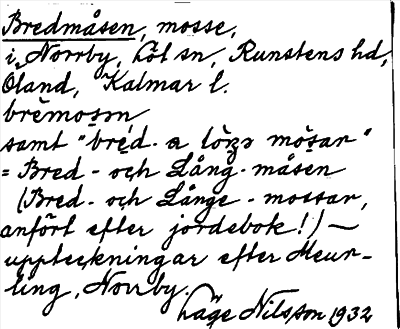 Bredmåsen, mosse,
i Norrby, Löt sn, Runstens hd,
Öland, Kalmar l.
brēmosən
samt "brēd- a lōŋə mōsar"
= Bred- och Lång-måsen
(Bred- och Långe-mossar,
anfört efter jordebok!) —
uppteckningar efter Meur-
ling, Norrby.
Läge Nilsson 1932